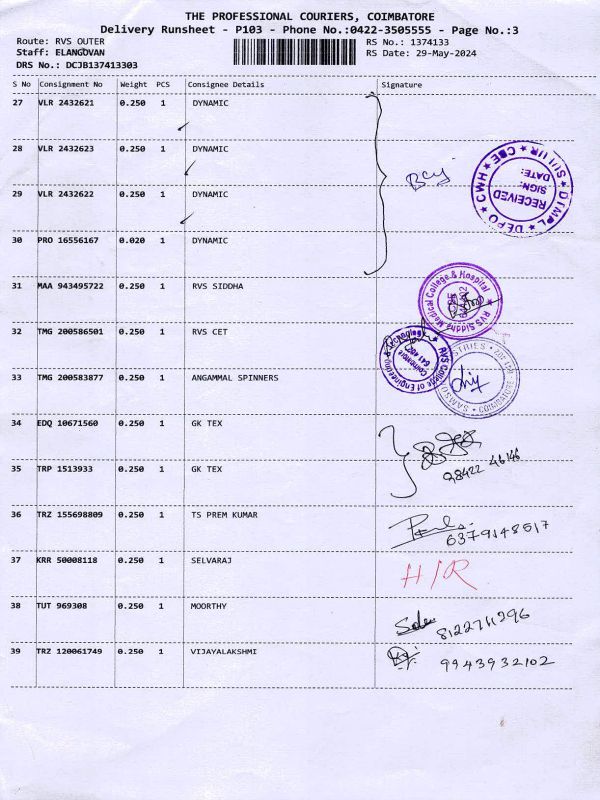 THE PROFESSIONAL COURIERS, COIMBATORE
Delivery Runsheet - P103 - Phone No.:0422-3505555 - Page No.:3
Route: RVS OUTER
RS No.: 1374133
Staff: ELANGOVAN
RS Date: 29-May-2024
DRS No.: DCJB137413303
S No Consignment No Weight PCS Consignee Details Signature
27 VLR 2432621 0.250 1 DYNAMIC
28 VLR 2432623 0.250 1 DYNAMIC
29 VLR 2432622 0.250 1 DYNAMIC
30 PRO 16556167 0.020 1 DYNAMIC
DFMPL ★ DEPO ★ CWH ★ CBE ★
RECEIVED
SIGN:
DATE:
31 MAA 943495722 0.250 1 RVS SIDDHA
RVS Siddha Medical College & Hospital
32 TMG 200586501 0.250 1 RVS CET
RVS College of Engineering &
Coimbatore
641 402
33 TMG 200583877 0.250 1 ANGAMMAL SPINNERS
34 EDQ 10671560 0.250 1 GK TEX
35 TRP 1513933 0.250 1 GK TEX
98422 46146
36 TRZ 155698809 0.250 1 TS PREM KUMAR
6379148517
37 KRR 50008118 0.250 1 SELVARAJ
H/R
38 TUT 969308 0.250 1 MOORTHY
39 TRZ 120061749 0.250 1 VIJAYALAKSHMI
9943932102